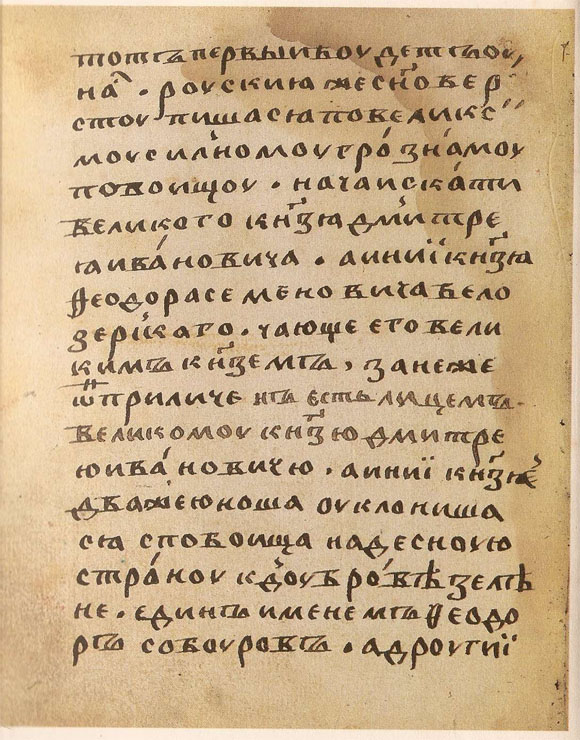 тотъ первыи боудетъ оу
на҇ . роускиꙗ же сн҃ове р
стоупишасѧ по велик
моу силномоу гро́зна́моу
побоищоу . нача искати
великого кнѧ҃зѧ дми́тре
ꙗ ива́новича . а инїи кнѧ҃зѧ
ѳеодора семеновича бело
зерск̾аго . чающе его вели
кимъ кнѧ҃земъ , занеже
ѿ приличенъ есть лицемъ .
великомоу кнѧ҃зю дмитре
ю ива́новичю . а инїи кнѧ҃зе
два же юноша оуклониша
сѧ с побоища на десноую
стра́ноу к доубро́вѣ зелѣ
не . единъ именемъ ѳеодо
ръ собоуровъ . а дроугїи